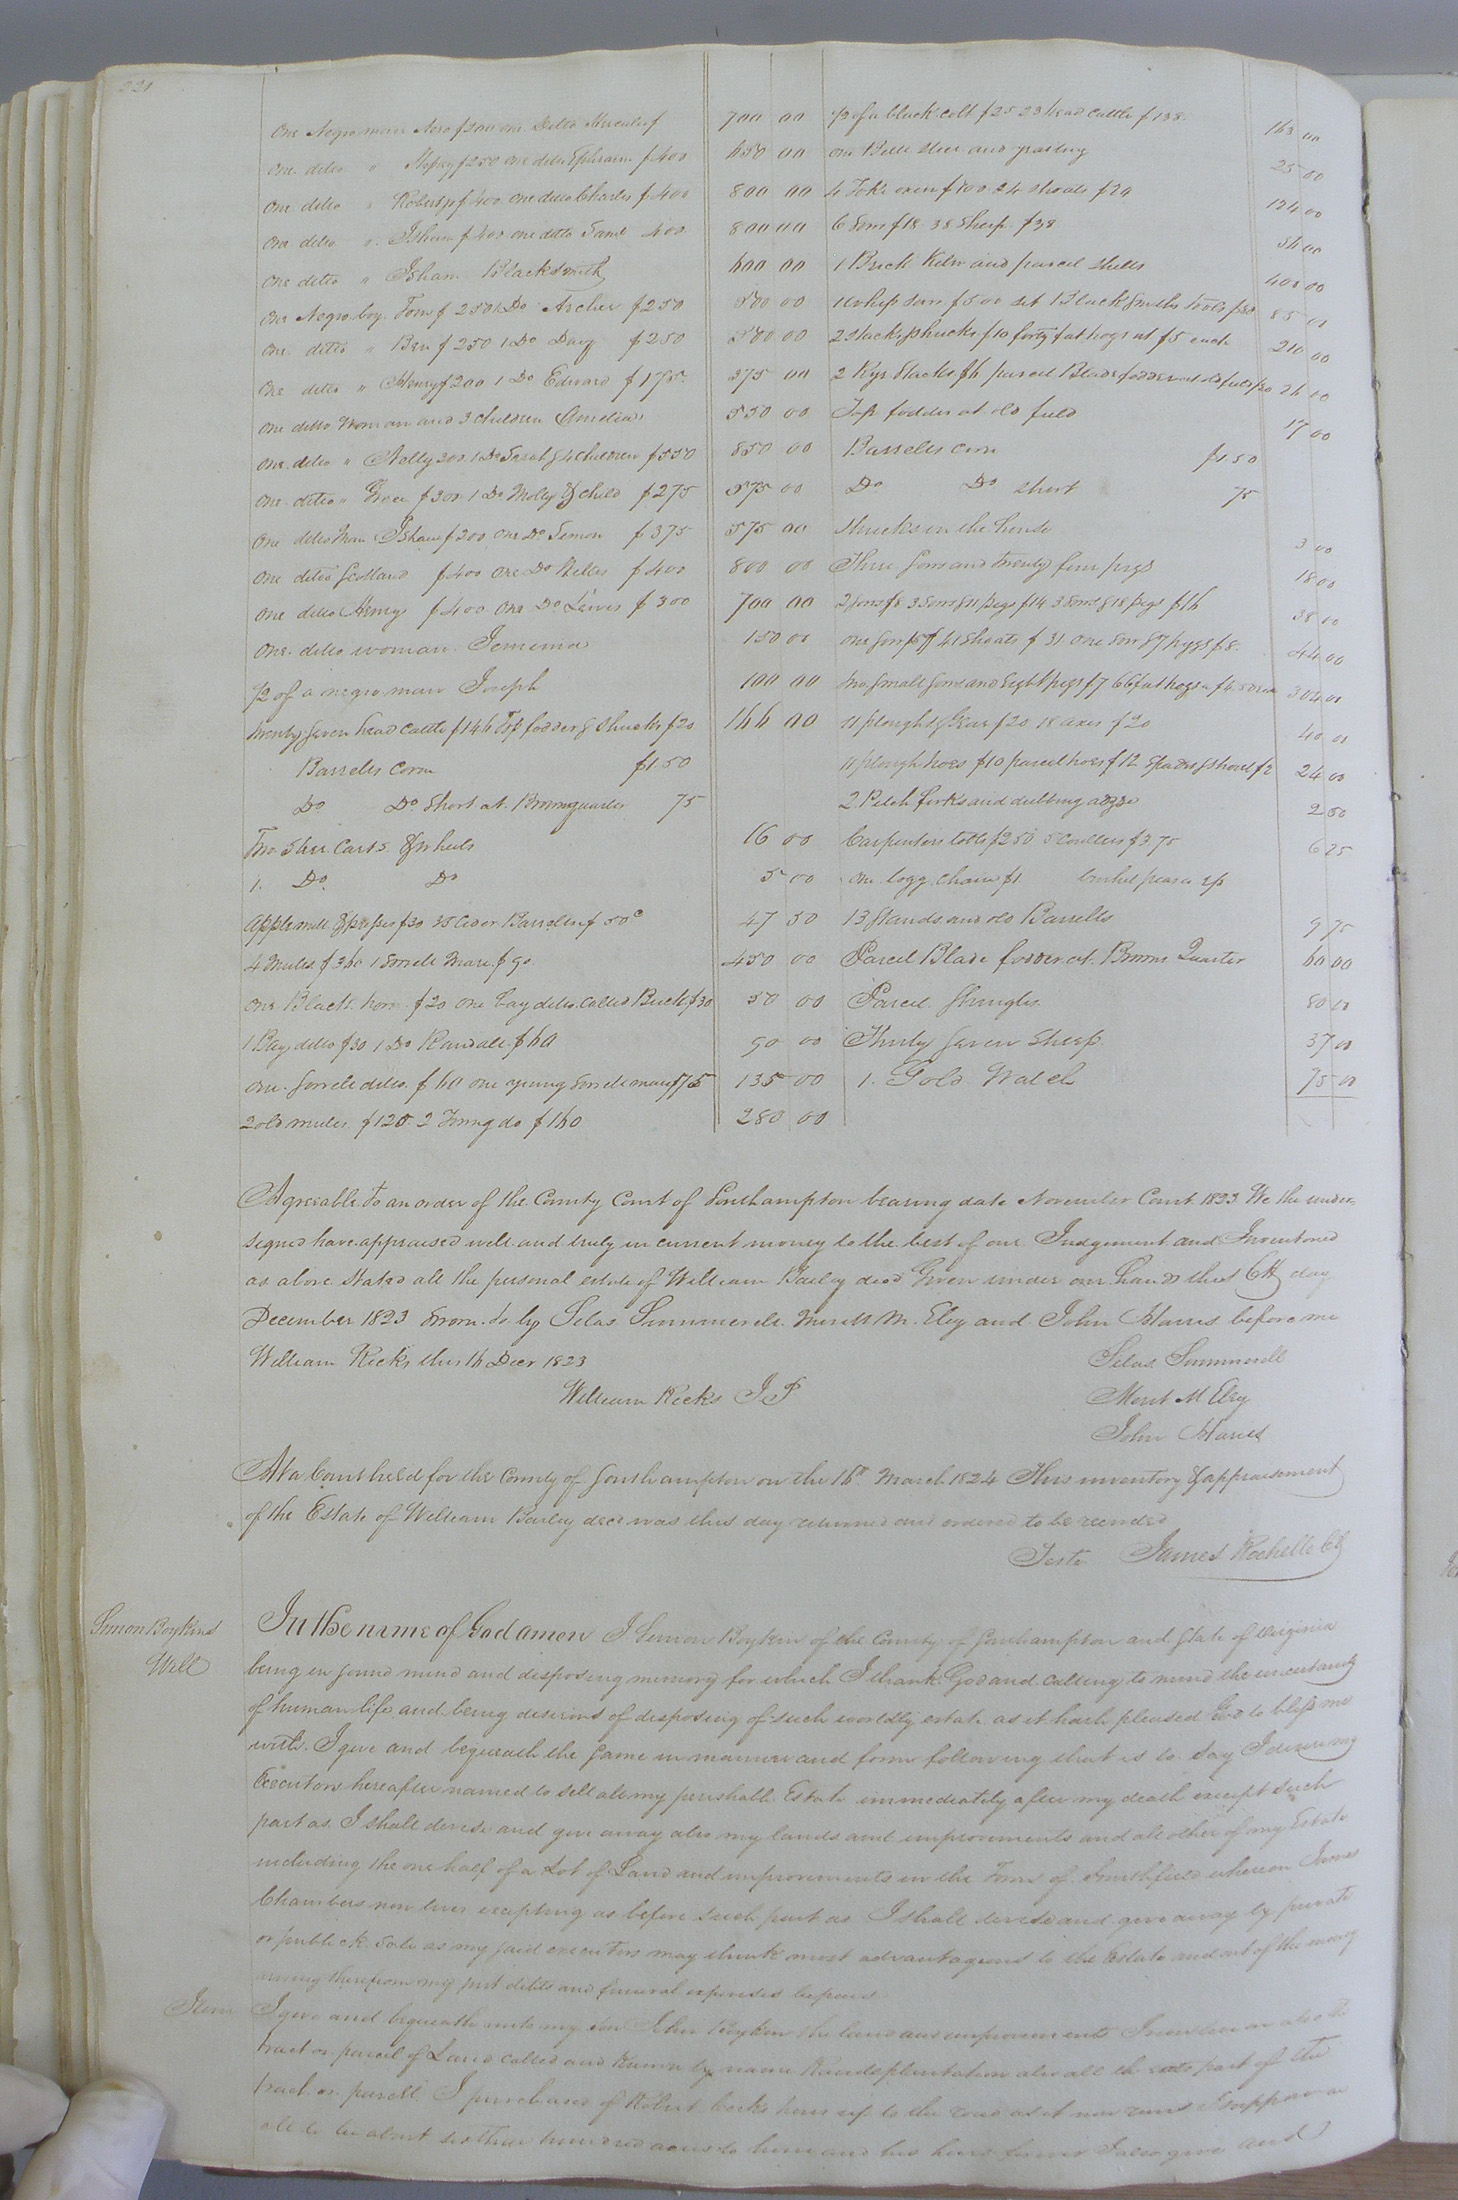 221
One Negro man Nero $300 one Ditto Hercules $ 700 00
One ditto " $250 one ditto Ephraim $400 650 00
One ditto " Robert $400 one ditto Charles $400 800 00
One ditto " Isham $400 one ditto Saml 400 800 00
One ditto " Isham Blacksmith 600 00
One Negro boy Tom $250 1 Do Archer $250 500 00
One ditto " Ben $250 1 Do Davy $250 500 00
One ditto " Henry $200 1 Do Edward $175 375 00
One ditto Woman and 3 children Amelia 550 00
One ditto " Nelly 300 1 Do Sarah & 4 children $550 850 00
One ditto " Grace $300 1 Do Molly & child $275 575 00
One ditto Man Isham $200 one Do Simon $375 575 00
One ditto Scotland $400 one Do $400 800 00
One ditto Henry $400 one Do Lewis $300 700 00
One ditto woman Jemima 150 00
1/2 of a negro man Joseph 100 00
Twenty seven head cattle $146 Top fodder & shucks $20 166 00
Barrells Corn $1.50
Do Do Short at Brown quarter 75
Two Steer Carts & wheels 16 00
1. Do Do 5 00
Apple mill & press $30 35 Cider Barrells $ 50c 47 50
4 Mules $360 1 Sorrell Mare $90 450 00
One Black horse $20 one bay ditto called Buck $30 50 00
1 Bay ditto $30 1 Do Randall $60 90 00
one Sorrell ditto $60 one young Sorrell mare $75 135 00
2 old mules $120 2 Young do $160 280 00
1/2 of a black colt $25 23 head cattle $138 163 00
One Bull steer and yearling 25 00
4 Yoke oxen $100 24 shoats $24 124 00
6 Sows $18 38 Sheep $38 56 00
1 Brick Kiln and parcel shells 400 00
1 whip saw $5 00 set Black Smiths Tools $80 85 00
2 stacks shucks $10 forty fat hogs at $5 each 210 00
2 Rye Stacks $6 parcel Blade fodder at old field $20 26 00
Top fodder at old field 17 00
Barrells Corn $1 50
Do Do short 75
Shucks in the house 3 00
Three Sows and twenty four pigs 18 00
2 Sows $8 3 Sows & 11 pigs $14 3 Sows & 18 pigs $16 38 00
One Sow $5 41 Shoats $31 One Sow & 7 piggs $8 44 00
Two small Sows and Eight pigs $7 66 fat hogs at $4.50 304 00
11 ploughs & Gear $20 18 axes $20 40 00
11 plough hoes $10 parcel hoes $12 Spades & shovel $2 24 00
2 Pitch forks and dubbing adze 2 50
Carpenters tools $2 50 5 coulters $3.75 6 25
One logg chain $1 bushel pease
13 Stands and old Barrells 9 75
Parcel Blade fodder at Browns Quarter 60 00
Parcel Shingles 80 00
Thirty Seven Sheep 37 00
1. Gold Watch 75 00
Agreeable to an order of the County Court of Southampton bearing date November Court 1823 We the under-
signed have appraised well and truly in current money to the best of our Judgement and Inventoried
as above Stated all the personal estate of William Bailey decd Given under our hands this 6th day
December 1823 Sworn to by Silas Summerell Meritt M. Eley and John Harris before me
William Ricks this 16 Decr 1823
Silas Summerell
William Ricks J P
Merit M Eley
John Harris
At a Court held for the County of Southampton on the 16th March 1824 This inventory & appraisement
of the Estate of William Bailey decd was this day returned and ordered to be recorded
Teste James Rochelle Clk
Simon Boykins
Will
In the name of God amen I Simon Boykin of the County of Southampton and State of Virginia
being in sound mind and disposing memory for which I thank God and calling to mind the uncertainty
of human life and being desirous of disposing of such worldly estate as it hath pleased God to bless me
with. I give and bequeath the same in manner and form following that is to say I desire my
Executors hereafter named to sell all my perishable Estate immediately after my death except such
part as I shall devise and give away also my lands and improvements and all other of my Estate
including the one half of a Lot of Land and improvements in the Town of Smithfield whereon James
Chambers now lives excepting as before such part as I shall devise and give away by private
or publick sale as my said executors may think most advantageous to the Estate and out of the money
arising therefrom my just debts and funeral expenses be paid
Item I give and bequeath unto my son John Boykin the land and improvements I now live on also the
tract or parcel of Land called and known by name plantation also all the part of the
tract or parcell I purchased of Robert Cocks heirs up to the road as it now runs I suppose in
all to be about hundred acres to him and his heirs forever I also give and